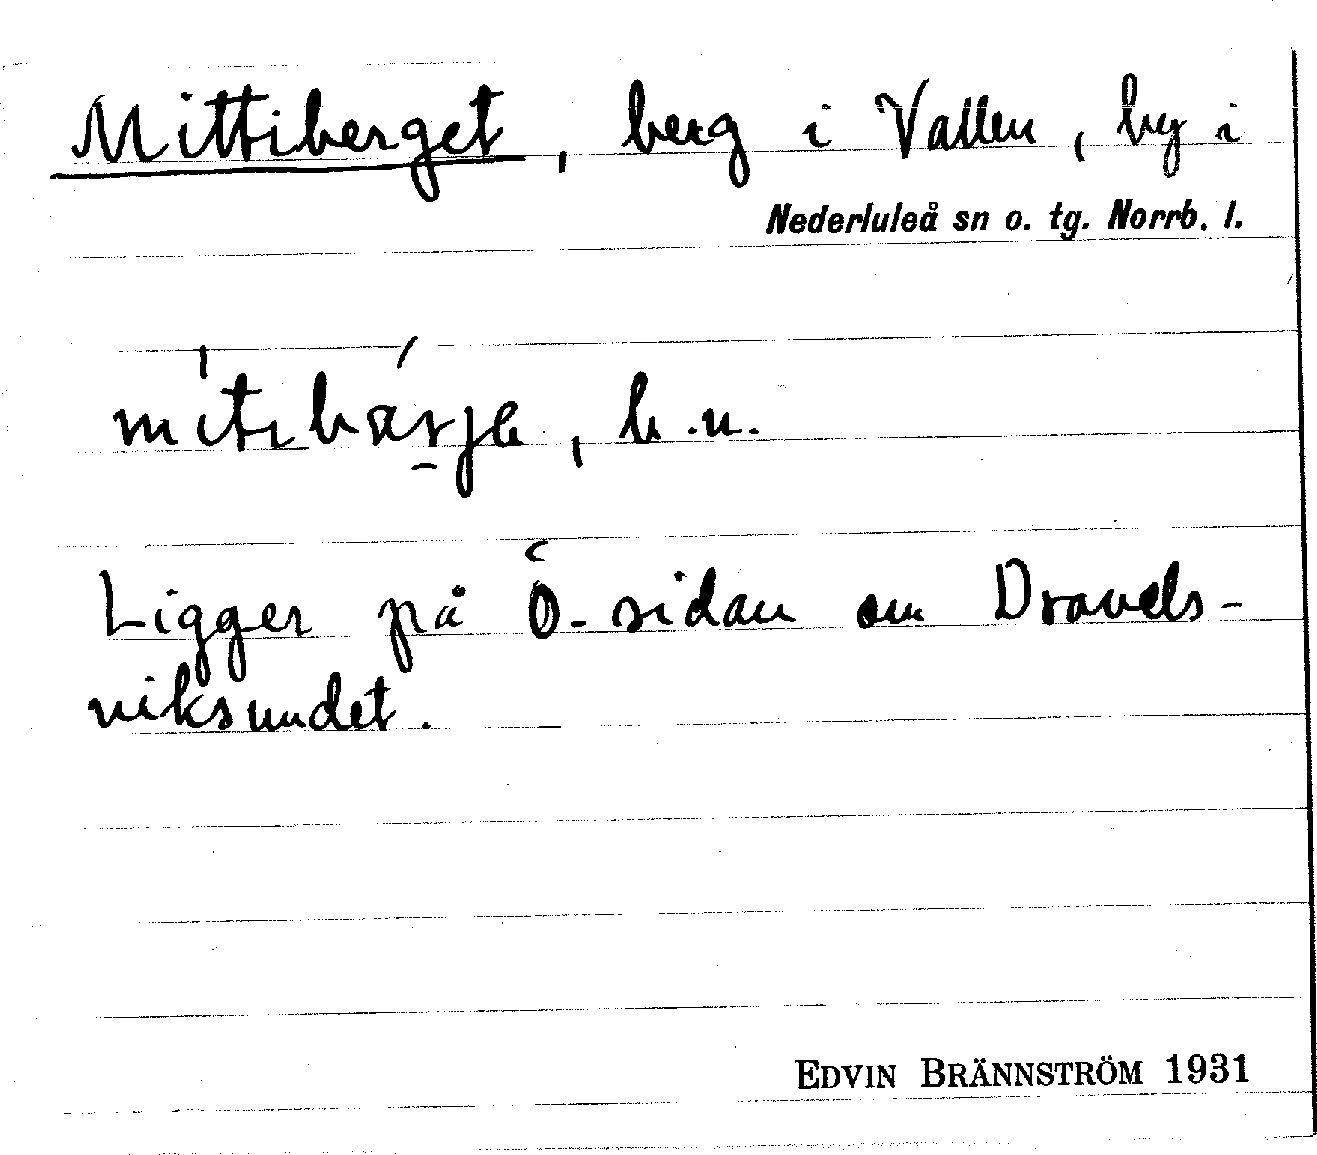 Mittiberget, berg i Vallen, by i
Nederluleå sn o. tg. Norrb. l.
b.n.
Ligger på Ö-sidan om Dravels-
viksundet.
EDVIN BRÄNNSTRÖM 1931